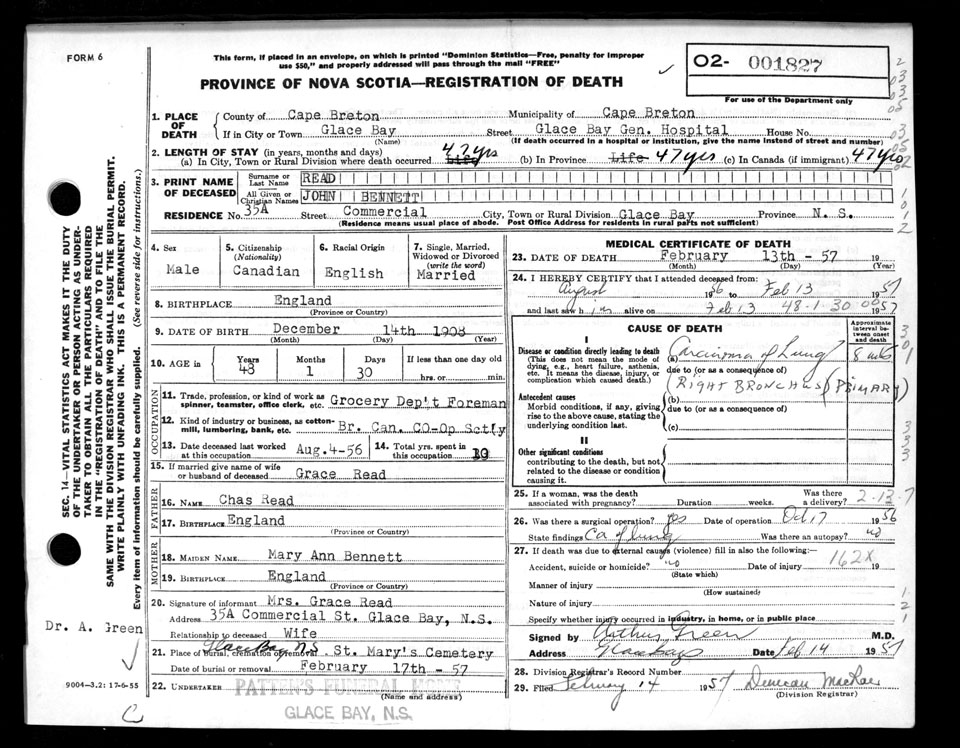 FORM 6
This form, if placed in an envelope, on which is printed "Dominion Statistics—Free, penalty for improper
use $50," and properly addressed will pass through the mail "FREE"
PROVINCE OF NOVA SCOTIA—REGISTRATION OF DEATH
02- 001827
For use of the Department only
1. PLACE OF DEATH
County of Cape Breton Municipality of Cape Breton
If in City or Town Glace Bay Street Glace Bay Gen. Hospital House No.
(Name) (If death occurred in a hospital or institution, give the name instead of street and number)
2. LENGTH OF STAY (in years, months and days)
(a) In City, Town or Rural Division where death occurred Life 47 yrs (b) In Province Life 47 yrs (c) In Canada (if immigrant) 47 yrs
3. PRINT NAME OF DECEASED
Surname or Last Name READ
All Given or Christian Names JOHN BENNETT
RESIDENCE No. 35A Street Commercial City, Town or Rural Division Glace Bay Province N. S.
(Residence means usual place of abode. Post Office Address for residents in rural parts not sufficient)
4. Sex
Male
5. Citizenship
(Nationality)
Canadian
6. Racial Origin
English
7. Single, Married, Widowed or Divorced
(write the word)
Married
8. BIRTHPLACE England
(Province or Country)
9. DATE OF BIRTH December 14th 1908
(Month) (Day) (Year)
10. AGE in
Years Months Days If less than one day old
48 1 30 hrs. or min.
OCCUPATION
11. Trade, profession, or kind of work as
spinner, teamster, office clerk, etc. Grocery Dep't Foreman
12. Kind of industry or business, as cotton-
mill, lumbering, bank, etc. Br. Can. CO-Op Sctly
13. Date deceased last worked
at this occupation Aug. 4-56
14. Total yrs. spent in
this occupation
15. If married give name of wife
or husband of deceased Grace Read
FATHER
16. NAME Chas Read
17. BIRTHPLACE England
(Province or Country)
MOTHER
18. MAIDEN NAME Mary Ann Bennett
19. BIRTHPLACE England
(Province or Country)
20. Signature of informant Mrs. Grace Read
Address 35A Commercial St. Glace Bay, N.S.
Relationship to deceased Wife
21. Place of burial, cremation or removal Glace Bay N.S. St. Mary's Cemetery
Date of burial or removal February 17th - 57
22. UNDERTAKER PATTEN'S FUNERAL HOME
(Name and Address)
GLACE BAY, N.S.
MEDICAL CERTIFICATE OF DEATH
23. DATE OF DEATH February 13th - 57 19
(Month) (Day) (Year)
24. I HEREBY CERTIFY that I attended deceased from:
August 1956 to Feb 13 1957
and last saw him alive on Feb 13 48-1-30 00 57
CAUSE OF DEATH
Approximate interval between onset and death
I
Disease or condition directly leading to death
(This does not mean the mode of
dying, e.g., heart failure, asthenia,
etc. It means the disease, injury, or
complication which caused death.)
(a) Carcinoma of Lung
due to (or as a consequence of)
RIGHT BRONCHUS (PRIMARY)
Antecedent causes
Morbid conditions, if any, giving
rise to the above cause, stating the
underlying condition last.
(b)
due to (or as a consequence of)
(c)
II
Other significant conditions
contributing to the death, but not
related to the disease or condition
causing it.
25. If a woman, was the death
associated with pregnancy? Duration weeks. Was there a delivery? 2-13-7
26. Was there a surgical operation? yes Date of operation Oct 17 1956
State findings Ca of lung Was there an autopsy? no
27. If death was due to external causes (violence) fill in also the following:—
Accident, suicide or homicide? no Date of injury 19
(State which)
162X
Manner of injury
(How sustained)
Nature of injury
Specify whether injury occurred in industry, in home, or in public place
Signed by Arthur Green M.D.
Address Glace Bay Date Feb 14 1957
28. Division Registrar's Record Number
29. Filed February 14 1957 Duncan MacRae
(Division Registrar)
SEC. 14—VITAL STATISTICS ACT MAKES IT THE DUTY
OF THE UNDERTAKER OR PERSON ACTING AS UNDER-
TAKER TO OBTAIN ALL THE PARTICULARS REQUIRED
IN THE "REGISTRATION OF DEATH" AND TO FILE THE
SAME WITH THE DIVISION REGISTRAR WHO SHALL ISSUE THE BURIAL PERMIT.
WRITE PLAINLY WITH UNFADING INK. THIS IS A PERMANENT RECORD.
Every item of information should be carefully supplied. (See reverse side for instructions.)
Dr. A. Green
9004-3.2: 17-6-55